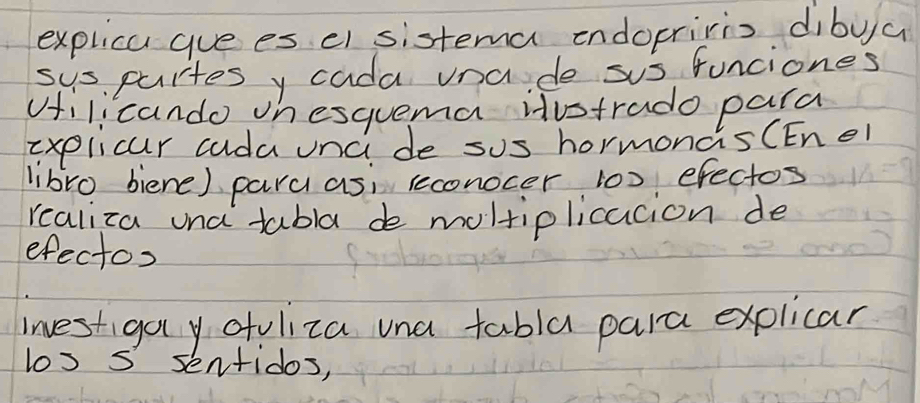 explica que es el sistema endopriris dibuja
sus partes y cada una de sus funciones
utilicando un esquema ilustrado para
explicar cada una de sus hormonas (En el
libro biene) para asi reconocer los efectos
realiza una tabla de multiplicacion de
efectos
investiga y otuliza una tabla para explicar
los 5 sentidos,